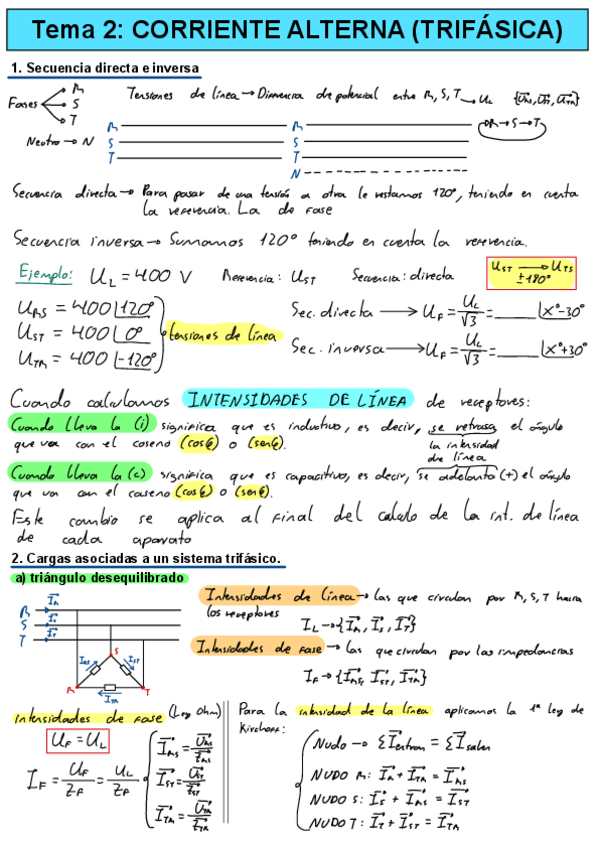 Tema 2: CORRIENTE ALTERNA (TRIFÁSICA)
1. Secuencia directa e inversa
Fases R S T
Tensiones de línea → Diferencia de potencial entre R, S, T → UL {URS, UST, UTR}
R → S → T
Neutro → N
R
S
T
R
S
T
N
Secuencia directa → Para pasar de una tensión a otra le restamos 120°, teniendo en cuenta
la referencia. La de fase
Secuencia inversa → Sumamos 120° teniendo en cuenta la referencia.
Ejemplo: UL = 400 V Referencia: UST Secuencia: directa
UST → UTS
±180°
URS = 400 |120°
UST = 400 |0°
UTR = 400 |-120°
tensiones de línea
Sec. directa → UF = UL/√3 = ____ |x°-30°
Sec. inversa → UF = UL/√3 = ____ |x°+30°
Cuando calculamos INTENSIDADES DE LÍNEA de receptores:
Cuando lleva la (i) significa que es inductivo, es decir, se retrasa el ángulo
la intensidad
de línea
que va con el coseno (cosφ) o (senφ).
Cuando lleva la (c) significa que es capacitivo, es decir, se adelanta (+) el ángulo
que va con el coseno (cosφ) o (senφ).
Este cambio se aplica al final del calculo de la int. de línea
de cada aparato
2. Cargas asociadas a un sistema trifásico.
a) triángulo desequilibrado
R IR
S IS
T IT
S
IRS IST
R T
ITR
Intensidades de línea → las que circulan por R, S, T hacia
los receptores
IL → {IR, IS, IT}
Intensidades de fase → las que circulan por las impedancias
IF → {IRS, IST, ITR}
intensidades de fase (Ley Ohm)
UF = UL
IF = UF/ZF = UL/ZF
IRS = URS/ZRS
IST = UST/ZST
ITR = UTR/ZTR
Para la intensidad de la línea aplicamos la 1ª Ley de
Kirchoff:
Nudo → ΣIentran = ΣIsalen
NUDO R: IR + ITR = IRS
NUDO S: IS + IRS = IST
NUDO T: IT + IST = ITR